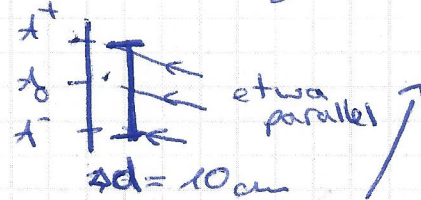 λ⁺
λ₀
λ⁻
etwa
parallel
Δd = 10 cm